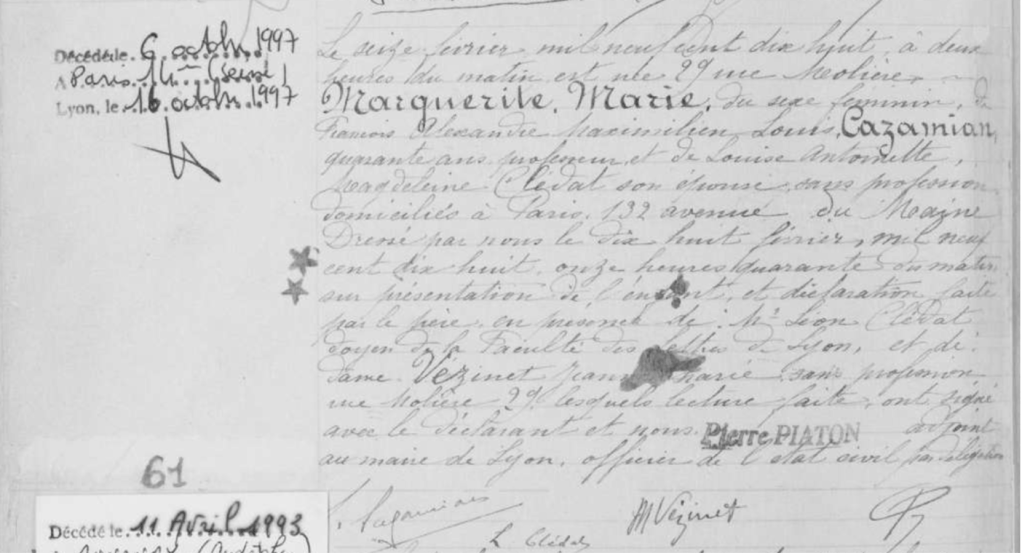 Décédée le 6 octobre 1997
A Paris 14ème (Seine)
Lyon, le 16 octobre 1997
Le seize février mil neuf cent dix huit, à deux
heures du matin, est née 29 rue Molière,
Marguerite, Marie, du sexe féminin, de
François Alexandre Maximilien Louis, Cazamian,
quarante ans, professeur, et de Louise Antoinette,
Magdeleine Clédat son épouse, sans profession
domiciliés à Paris, 132 avenue du Maine
Dressé par nous le dix huit février, mil neuf
cent dix huit, onze heures quarante du matin
sur présentation de l'enfant, et déclaration faite
par le père, en présence de Mr Léon Clédat
doyen de la Faculté des lettres de Lyon, et de
dame Vézinet Jeanne Marie sans profession
rue Molière 29, lesquels lecture faite, ont signé
avec le déclarant et nous Pierre PIATON adjoint
au maire de Lyon, officier de l'état civil par délégation
61
L. Cazamian
M Vézinet
L Clédat
Décédé le 11 Avril 1993